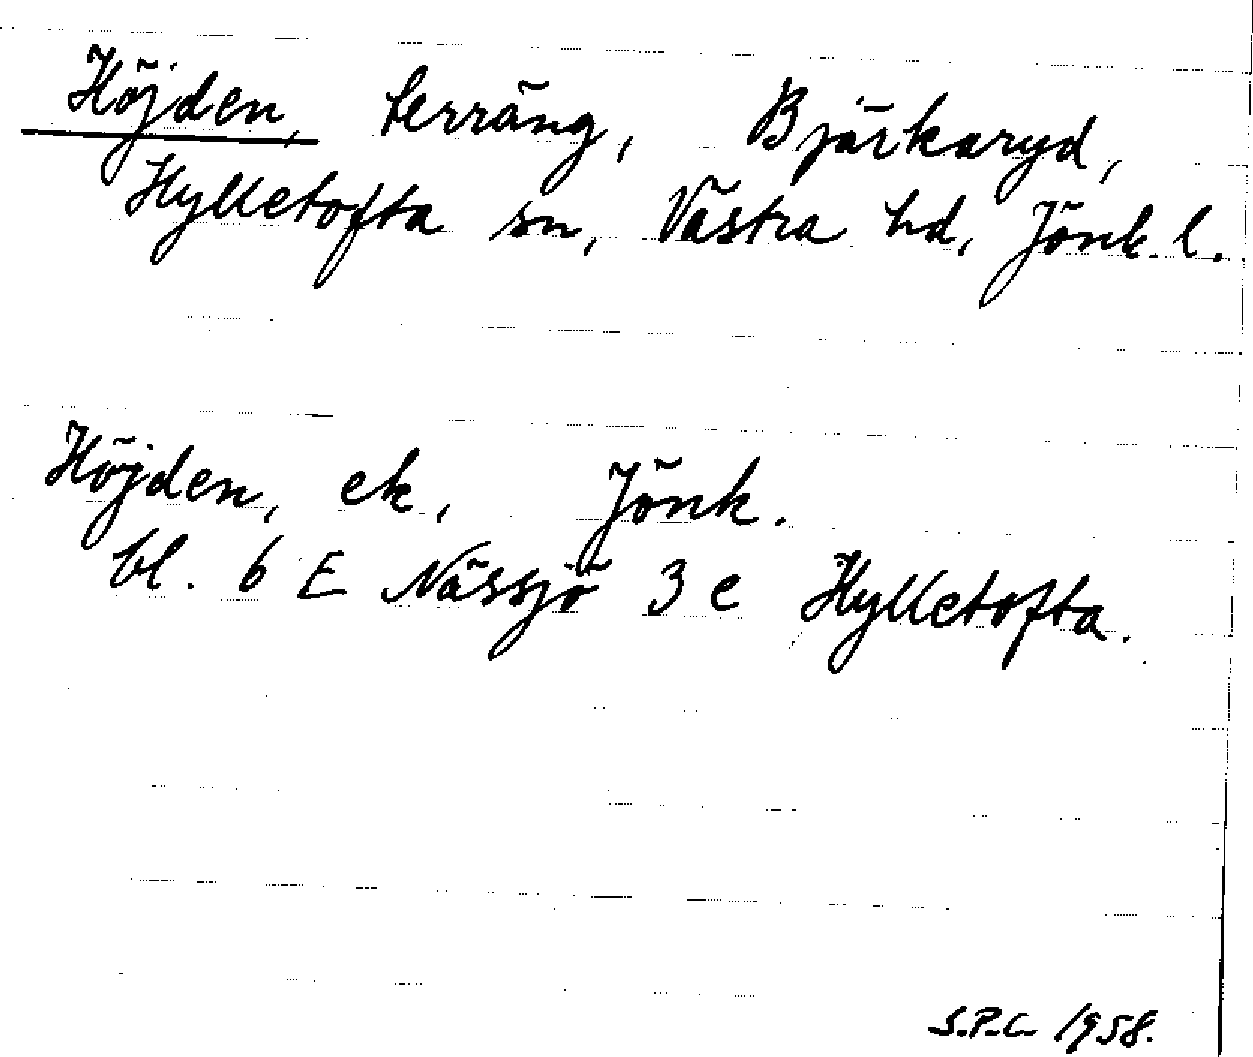 Höjden, terräng, Bjärkaryd,
Hylletofta sn, Västra hd, Jönk. l.
Höjden, ek, Jönk.
bl. 6 E Nässjö 3 e Hylletofta.
S.P.C. 1958.